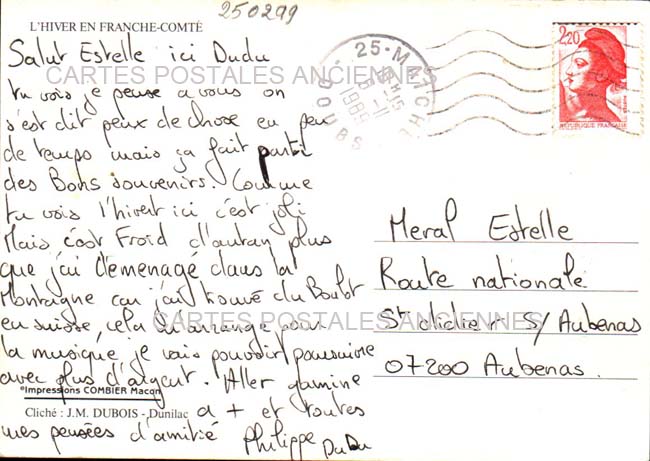 250299
L'HIVER EN FRANCHE-COMTÉ
Salut Estelle ici Dudu
tu vois je pense a vous on
s'est dit peux de chose en peu
de temps mais ça fait parti
des Bons souvenirs. Comme
tu vois l'hivert ici c'est joli
Mais c'est Froid d'autan plus
que j'ai démenagé dans la
Montaigne car j'ai trouvé du Boulot
en suisse, cela m'arrange pour
la musique, je vais pouvoir poursuivre
avec plus d'argent. Aller gamine
a + et toutes
mes pensées d'amitié Philippe
DuDu
®Impressions COMBIER Macon
Cliché : J.M. DUBOIS - Dunilac
25 - MAICHE
1989
DOUBS
2,20
REPUBLIQUE FRANCAISE
Meral Estelle
Route nationale
St didier s/ Aubenas
07200 Aubenas.
CARTES POSTALES ANCIENNES
CARTES POSTALES ANCIENNES